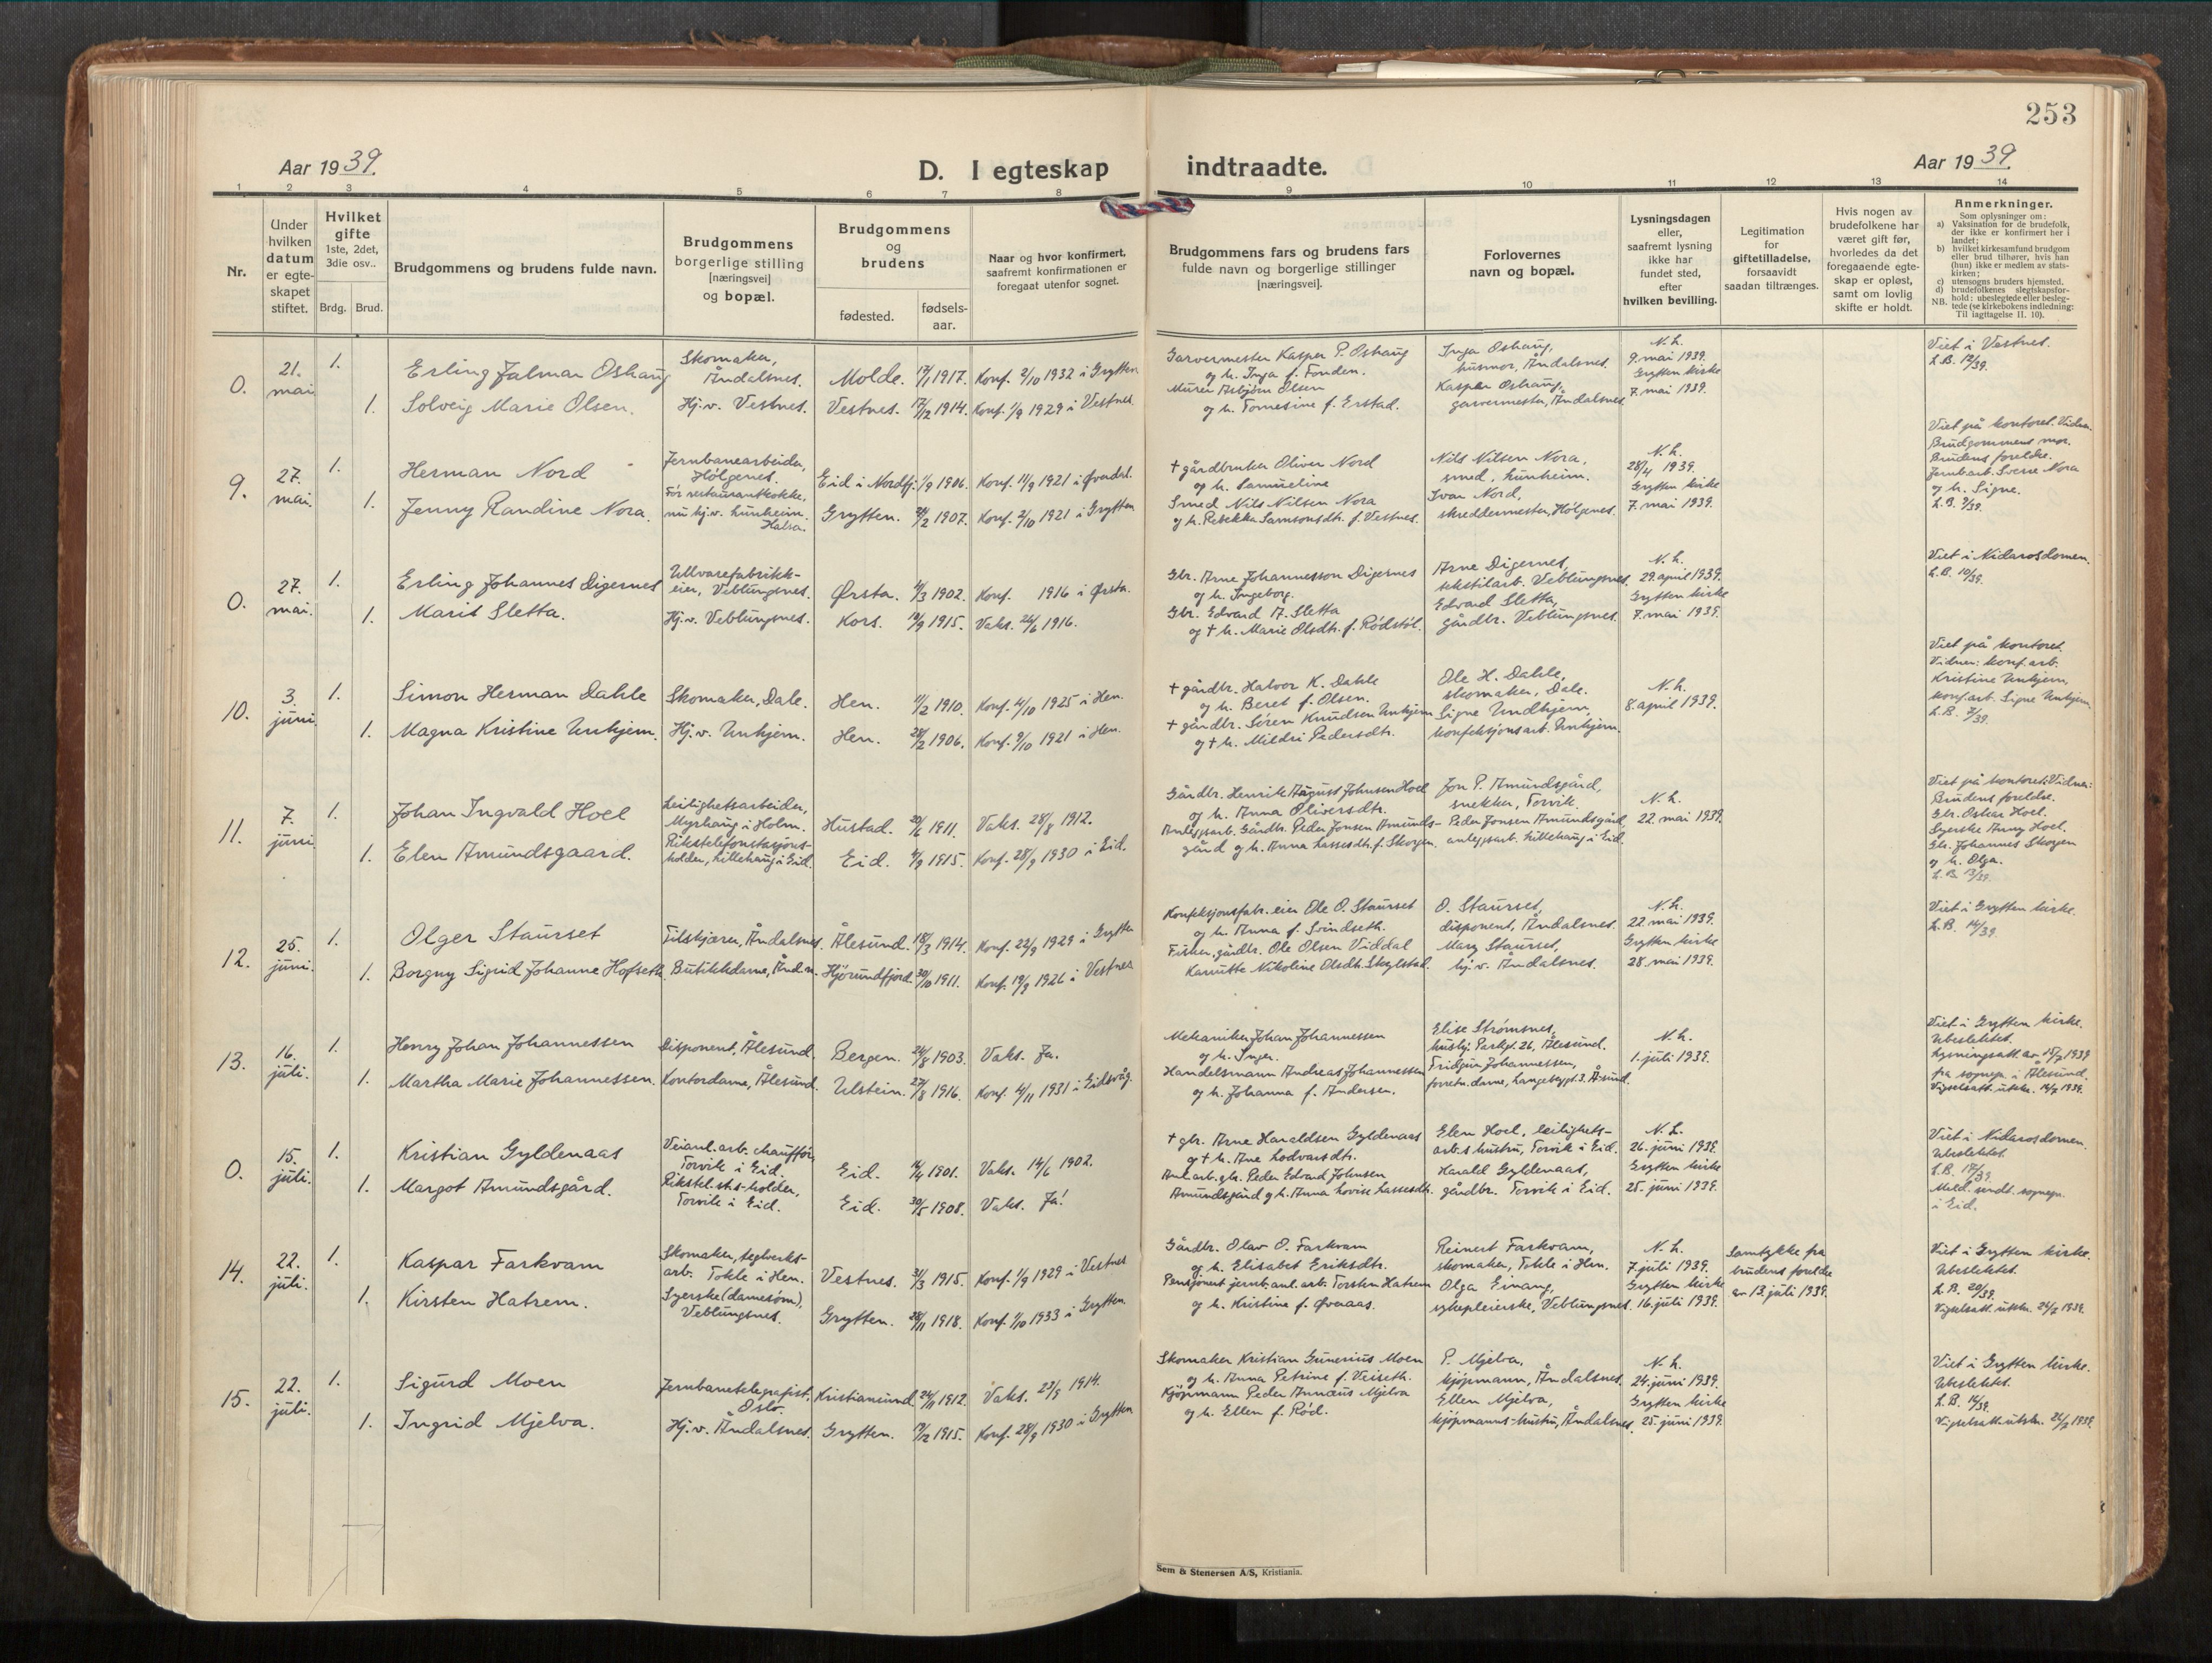 253
Aar 1939.
D. I egteskap indtraadte.
Aar 1939.
1 2 3 4 5 6 7 8 9 10 11 12 13 14
Nr.
Under hvilken datum er egteskapet stiftet.
Hvilket gifte 1ste, 2det, 3die osv..
Brdg. Brud.
Brudgommens og brudens fulde navn.
Brudgommens borgerlige stilling [næringsvei] og bopæl.
Brudgommens og brudens
fødested.
fødsels-aar.
Naar og hvor konfirmert, saafremt konfirmationen er foregaat utenfor sognet.
Brudgommens fars og brudens fars fulde navn og borgerlige stillinger [næringsvei].
Forlovernes navn og bopæl.
Lysningsdagen eller, saafremt lysning ikke har fundet sted, efter hvilken bevilling.
Legitimation for giftetilladelse, forsaavidt saadan tiltrænges.
Hvis nogen av brudefolkene har været gift før, hvorledes da det foregaaende egteskap er opløst, samt om lovlig skifte er holdt.
Anmerkninger.
Som oplysning om:
a) Vaksination for de brudefolk, der ikke er konfirmert her i landet;
b) hvilket kirkesamfund brudgom eller brud tilhører, hvis han (hun) ikke er medlem av statskirken;
c) utensogns bruders hjemsted.
d) brudefolkenes slegtskapsforhold: ubeslegtede eller beslegtede (se kirkebokens indledning:
NB. Til iagttagelse II. 10).
0. 21. mai 1.
Erling Jalmar Oshaug
Skomaker, Åndalsnes.
Molde. 17/1 1917. Konf. 2/10 1932 i Grytten
Garvermester Kasper P. Oshaug
og h. Inga f. Fonden.
Inga Oshaug, husmor, Åndalsnes.
N. h. 9. mai 1939.
Viet i Vestnes.
L.B. 12/39.
1. Solveig Marie Olsen.
Hj.v. Vestnes.
Vestnes. 17/2 1914. Konf. 1/9 1929 i Vestnes
Murer Asbjørn Olsen
og h. Tomesine f. Erstad.
Kasper Oshaug, garvermester, Åndalsnes.
Grytten kirke 7. mai 1939.
9. 27. mai. 1.
Herman Nord
Jernbanearbeider, Hølgenes.
Eid i Nordfj. 1/9 1906. Konf. 11/9 1921 i Øvredal.
+ gårdbruker Oliver Nord
og h. Samueline
Nils Nilsen Nora, smed, Lunheim.
N. h. 28/4 1939.
Viet på kontoret. Vidner:
Brudgommens mor.
Brudens foreldre.
Jernb.arb. Sverre Nora
og h. Signe.
1. Jenny Randine Nora.
Før restaurantkokke, nu hj.v. Lunheim.
Grytten. 1907. Konf. 2/10 1921 i Grytten
Smed Nils Nilsen Nora
og h. Rebekka Samsonsdtr. f. Vestnes.
Ivar Nord, skreddermester, Hølgenes.
Grytten kirke 7. mai 1939.
0. 27. mai. 1.
Erling Johannes Digernes
Ullvarefabrikk-eier, Veblungsnes.
Ørsta. 1902. Konf. 1916 i Ørsta.
Gbr. Arne Johannesson Digernes
og h. Ingeborg.
Arne Digernes, tekstilarb. Veblungsnes.
N. h. 29. april 1939.
Viet i Nidarosdomen.
L.B. 10/39.
1. Marit Sletta.
Hj.v. Veblungsnes.
Kors. 1915. Vaks. 26/6 1916.
Gbr. Edvard A. Sletta
og + h. Marie Olsdtr. f. Rødstøl.
Edvard Sletta, gårdbr. Veblungsnes.
Grytten kirke 7. mai 1939.
10. 3. juni. 1.
Simon Herman Dahle
Skomaker, Dale.
Hen. 11/2 1910. Konf. 4/10 1925 i Hen.
+ gårdbr. Halvor K. Dahle
og h. Beret f. Olsen.
Ole H. Dahle, skomaker, Dale.
N. h. 8. april 1939.
Viet på kontoret.
Vidner: konf. arb.
Kristine Unhjem,
konf. arb. Signe Unhjem.
L.B. 7/39.
1. Magna Kristine Unhjem.
Hj.v. Unhjem.
Hen. 28/2 1906. Konf. 9/10 1921 i Hen.
+ gårdbr. Søren Knudsen Unhjem
og + h. Mildri Pedersdtr.
Signe Undhjem, konfeksjonsarb. Unhjem.
11. 7. juni. 1.
Johan Ingvald Hoel
Leilighetsarbeider, Myrhaug i Holm.
Hustad. 20/6 1911. Vaks. 28/8 1912.
Gårdbr. Henrik August Johnsen Hoel
og h. Anna Oliversdtr.
Jon P. Amundsgård, snekker, Torvik.
N. h. 22. mai 1939.
Viet på kontoret: Vidner:
Brudens foreldre.
Gbr. Oskar Hoel.
Syerske Anny Hoel.
Gbr. Johannes Skorgen
og h. Olga.
L.B. 13/39.
1. Elen Amundsgaard.
Rikstelefonstasjons-holder, Lillehaug i Eid.
Eid. 1915. Konf. 28/9 1930 i Eid.
Anleggsarb. Gårdbr. Peder Jonsen Amunds-
gård og h. Anna Lassesdtr. f. Skorgen.
Peder Jonsen Amundsgård, anleggsarb. Lillehaug i Eid.
12. 25. juni. 1.
Olger Staurset
Tilskjærer, Åndalsnes.
Ålesund. 18/3 1914. Konf. 22/9 1929 i Grytten
Konfeksjonsfabr. eier Ole O. Staurset
og h. Anna f. Svindseth.
O. Staurset, disponent, Åndalsnes.
N. h. 22 mai 1939.
Viet i Grytten kirke.
L.B. 14/39.
1. Borgny Sigrid Johanne Hofseth.
Butikkdame, Åndn.
Hjørundfjord. 30/10 1911. Konf. 19/9 1926 i Vestnes
Fisker, gårdbr. Ole Olsen Viddal
Kanutte Nikoline Olsdtr. Skylstad.
Mary Staurset, hj.v. Åndalsnes.
Grytten kirke 28. mai 1939.
13. 16. juli. 1.
Henry Johan Johannessen
Disponent, Ålesund.
Bergen. 24/8 1903. Vaks. Ja.
Mekaniker Johan Johannessen
og h. Inga.
Elise Strømsnes, Parkgt. 26, Ålesund.
N. h. 1. juli 1939.
Viet i Grytten kirke.
Ubeslektet.
Lysningsatt. av 15/7 1939
fra sognepr. i Ålesund.
Vigselsatt. utskr. 16/7 1939.
1. Martha Marie Johannessen.
Kontordame, Ålesund.
Ulstein. 27/8 1916. Konf. 4/11 1931 i Eidsvåg.
Handelsmann Andreas Johannessen
og h. Johanna f. Andersen.
Fridgun Johannessen, forretn.dame,
0. 15. juli. 1.
Kristian Gyldenaas
Veianl.arb. chauffør, Torvik i Eid.
Eid. 1901. Vaks. 14/6 1902.
+ gbr. Arne Haraldsen Gyldenaas
og + h. Ane Lodvarsdtr.
Elen Hoel, leilighets-arb.s hustru, Torvik i Eid.
N. h. 26. juni 1939.
Viet i Nidarosdomen.
Ubeslektet.
L.B. 17/39.
Meld. sendt sognepr.
i Eid.
1. Margot Amundsgård.
Rikstel.st.s-holder, Torvik i Eid.
Eid. 30/5 1908. Vaks. Ja!
Anl.arb. gbr. Peder Edvard Johnsen
Amundsgård og h. Anna Lovise Lassesdtr.
Harald Gyldenaas, gårdbr. Torvik i Eid.
Grytten kirke 25. juni 1939.
14. 22. juli. 1.
Kaspar Farkvam
Skomaker, teglverks-arb. Tokle i Hen.
Vestnes. 31/3 1915. Konf. 1/9 1929 i Vestnes
Gårdbr. Olav O. Farkvam
og h. Elisabet Eriksdtr.
Reinert Farkvam, skomaker, Tokle i Hen.
N. h. 7. juli 1939.
Samtykke fra brudens foreldre av 13. juli 1939.
Viet i Grytten kirke.
Ubeslektet.
L.B. 20/39.
Vigselsatt. utskr. 24/7 1939.
1. Kirsten Hatrem.
Syerske (damesøm), Veblungsnes.
Grytten. 28/11 1918. Konf. 1/10 1933 i Grytten
Pensjonert jernb.anl.arb. Torsten Hatrem
og h. Kristine f. Øveraas.
Olga Einang, sykepleierske, Veblungsnes.
Grytten kirke 16. juli 1939.
15. 22. juli. 1.
Sigurd Moen
Jernbanetelegrafist, Oslo.
Kristiansund. 24/11 1912. Vaks. 23/9 1914.
Skomaker Kristian Gunerius Moen
og h. Anna Petrine f. Veiseth.
P. Mjelva, kjøpmann, Åndalsnes.
N. h. 24. juni 1939.
Viet i Grytten kirke.
Ubeslektet.
L.B. 16/39.
Vigselsatt. utskr. 24/7 1939.
1. Ingrid Mjelva.
Hj.v. Åndalsnes.
Grytten. 19/2 1915. Konf. 28/9 1930 i Grytten
Kjøpmann Peder Annæus Mjelva
og h. Ellen f. Rød.
Ellen Mjelva, kjøpmanns-hustru, Åndalsnes.
Grytten kirke 25. juni 1939.
Sem & Stenersen A/S, Kristiania.